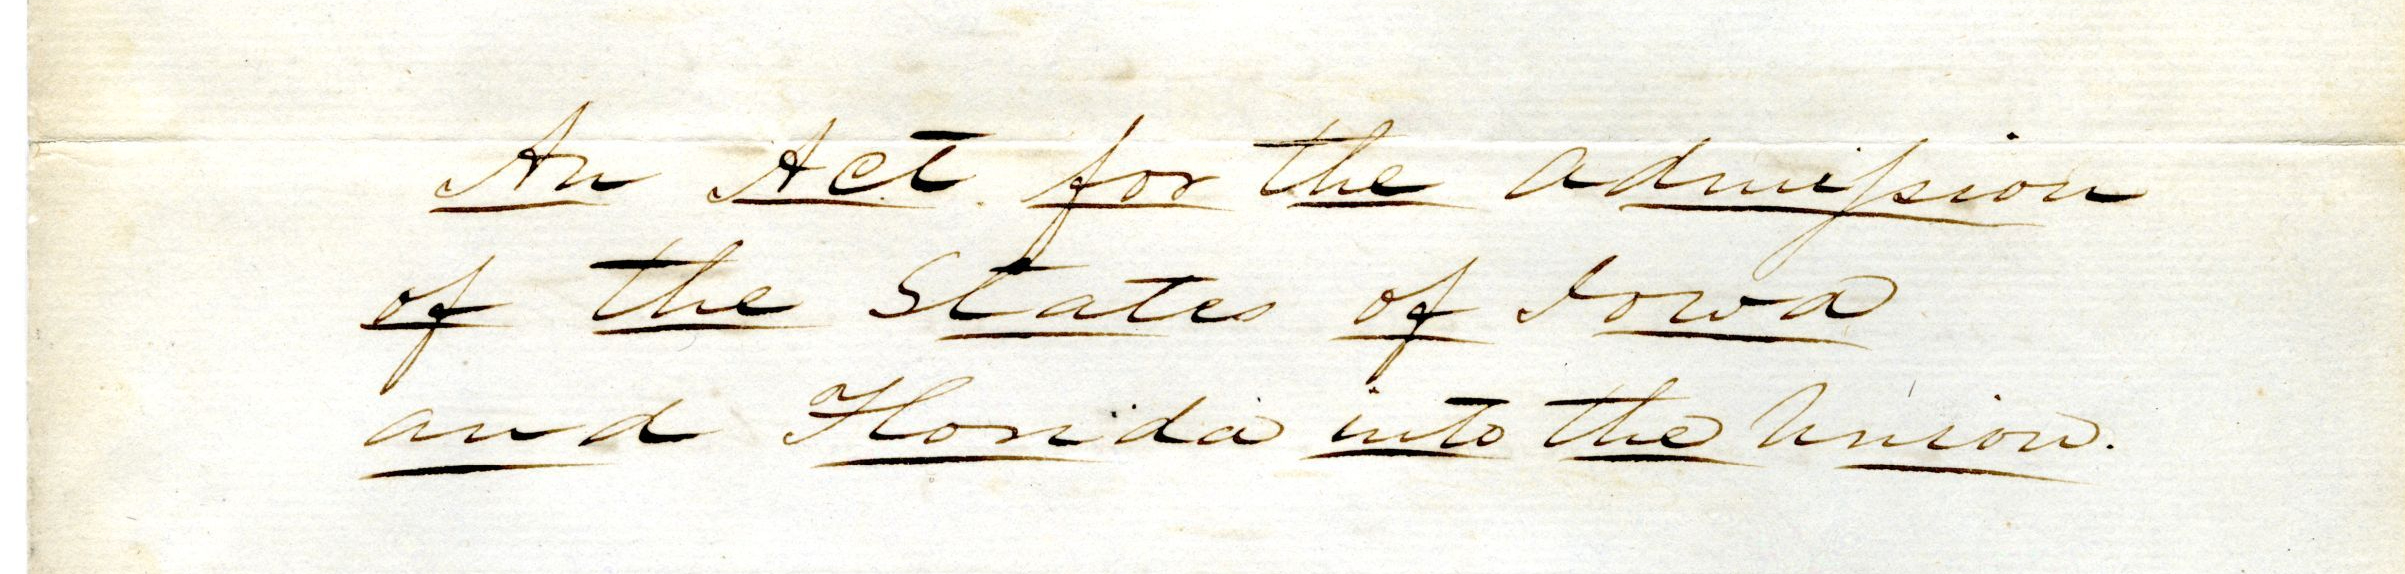 An Act for the admission
of the States of Iowa
and Florida into the Union.